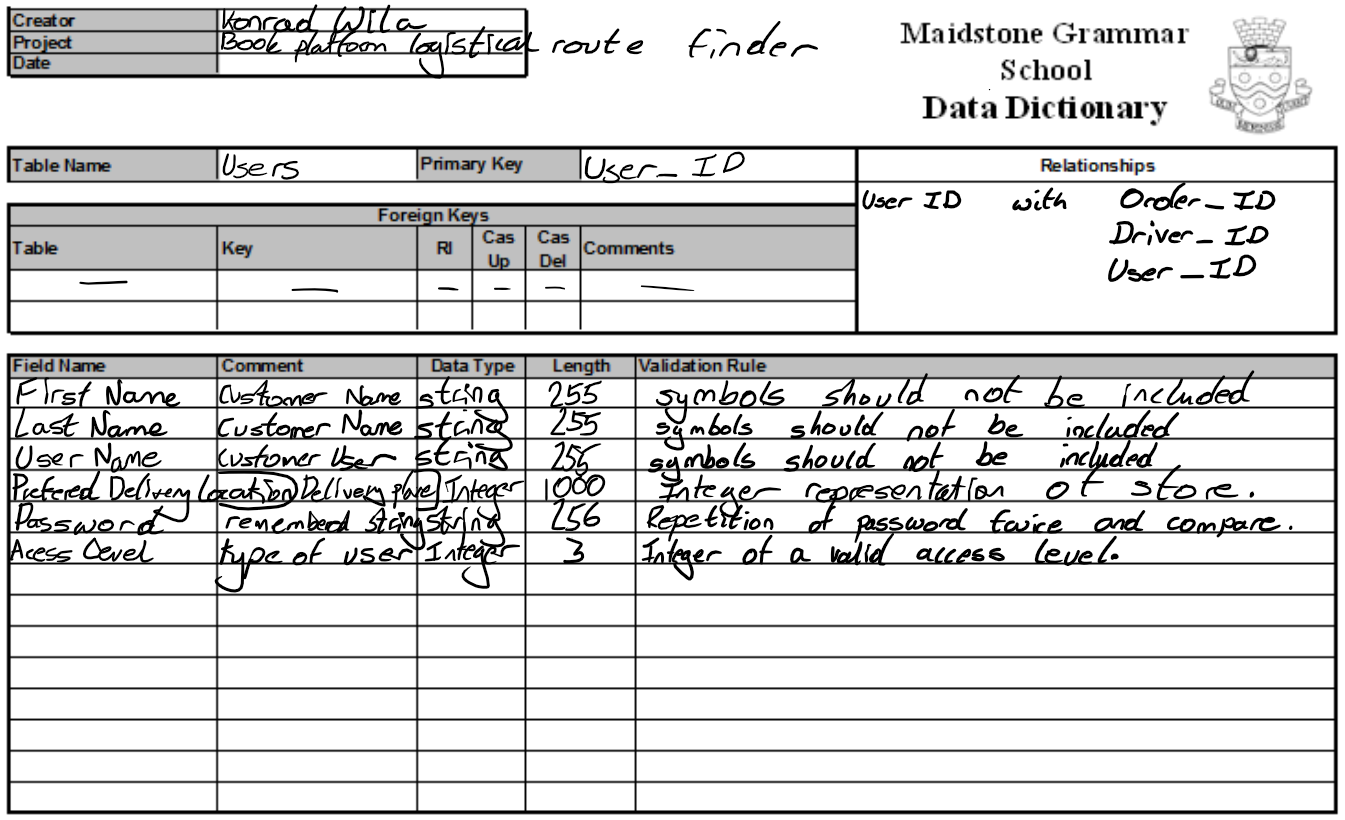 Creator Konrad Wila
Project Book platfoon logistical route finder
Date
Maidstone Grammar
School
Data Dictionary
Table Name Users Primary Key User_ID
Relationships
User ID with Order_ID
Driver_ID
User_ID
Foreign Keys
Table Key RI Cas Up Cas Del Comments
— — — — — —
Field Name Comment Data Type Length Validation Rule
First Name Customer Name string 255 symbols should not be included
Last Name Customer Name string 255 symbols should not be included
User Name Customer User string 255 symbols should not be included
Prefered Delivery location Delivery place Integer 1000 Integer representation of store.
Password rememberd string String 256 Repetition of password twice and compare.
Acess Level type of user Integer 3 Integer of a valid access level.